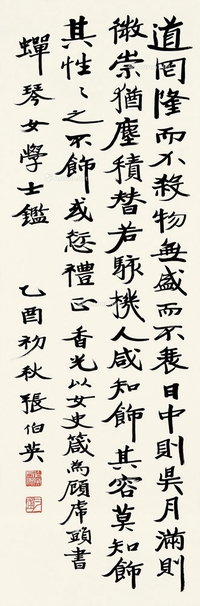 道罔隆而不殺物無盛而不衰日中則昃月滿則
微崇猶塵積替若駭機人咸知飾其容莫知飾
其性〻之不飾或愆禮正香光以女史箴為顧虎頭書
蟬琴女學士鑑
乙酉初秋張伯英